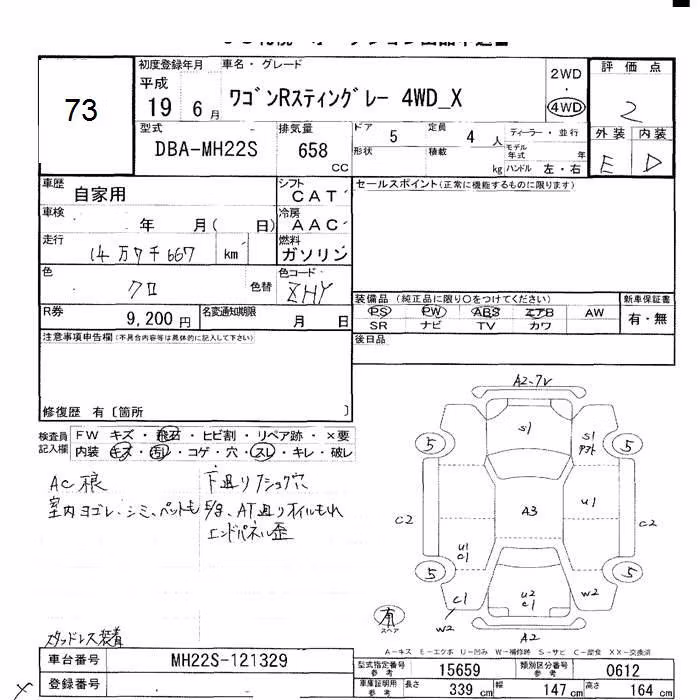 73
初度登録年月
平成
19 6 月
車名・グレード
ワゴンRスティングレー 4WD_X
2WD
・
4WD
評価点
2
外装 内装
E D
型式
DBA-MH22S
排気量
658
CC
ドア 5
定員 4 人
ディーラー・並行
形状
積載
kg
モデル年式 年
ハンドル 左・右
車歴 自家用
シフト CAT
車検 年 月( 日)
冷房 AAC
走行 14万7千667 km
燃料 ガソリン
色 クロ 色替
色コード ZHY
R券 9,200円
名変通知期限 月 日
セールスポイント(正常に機能するものに限ります)
装備品 (純正品に限り○をつけてください)
新車保証書
PS PW ABS エアB AW
SR ナビ TV カワ
有・無
後日品
注意事項申告欄(不具合内容等は具体的に記入して下さい)
修復歴 有〔箇所 〕
検査員記入欄
FW キズ・飛石・ヒビ割・リペア跡・×要
内装 キズ・汚レ・コゲ・穴・スレ・キレ・破レ
室内ヨゴレ、シミ、ペットも
エンドパネル歪
スタッドレス装着
A2-7V
S1
S1
5
5
A3
U1
C2
C2
U1
C1
5
5
U2
C1
W2
C1
W2
A2
有
スペア
A-キズ E-エクボ U-凹み W-補修跡 S-サビ C-腐食 XX-交換済
車台番号 MH22S-121329
登録番号
型式指定番号 参考 15659
類別区分番号 参考 0612
車庫証明用 参考 長さ 339 cm 幅 147 cm 高さ 164 cm